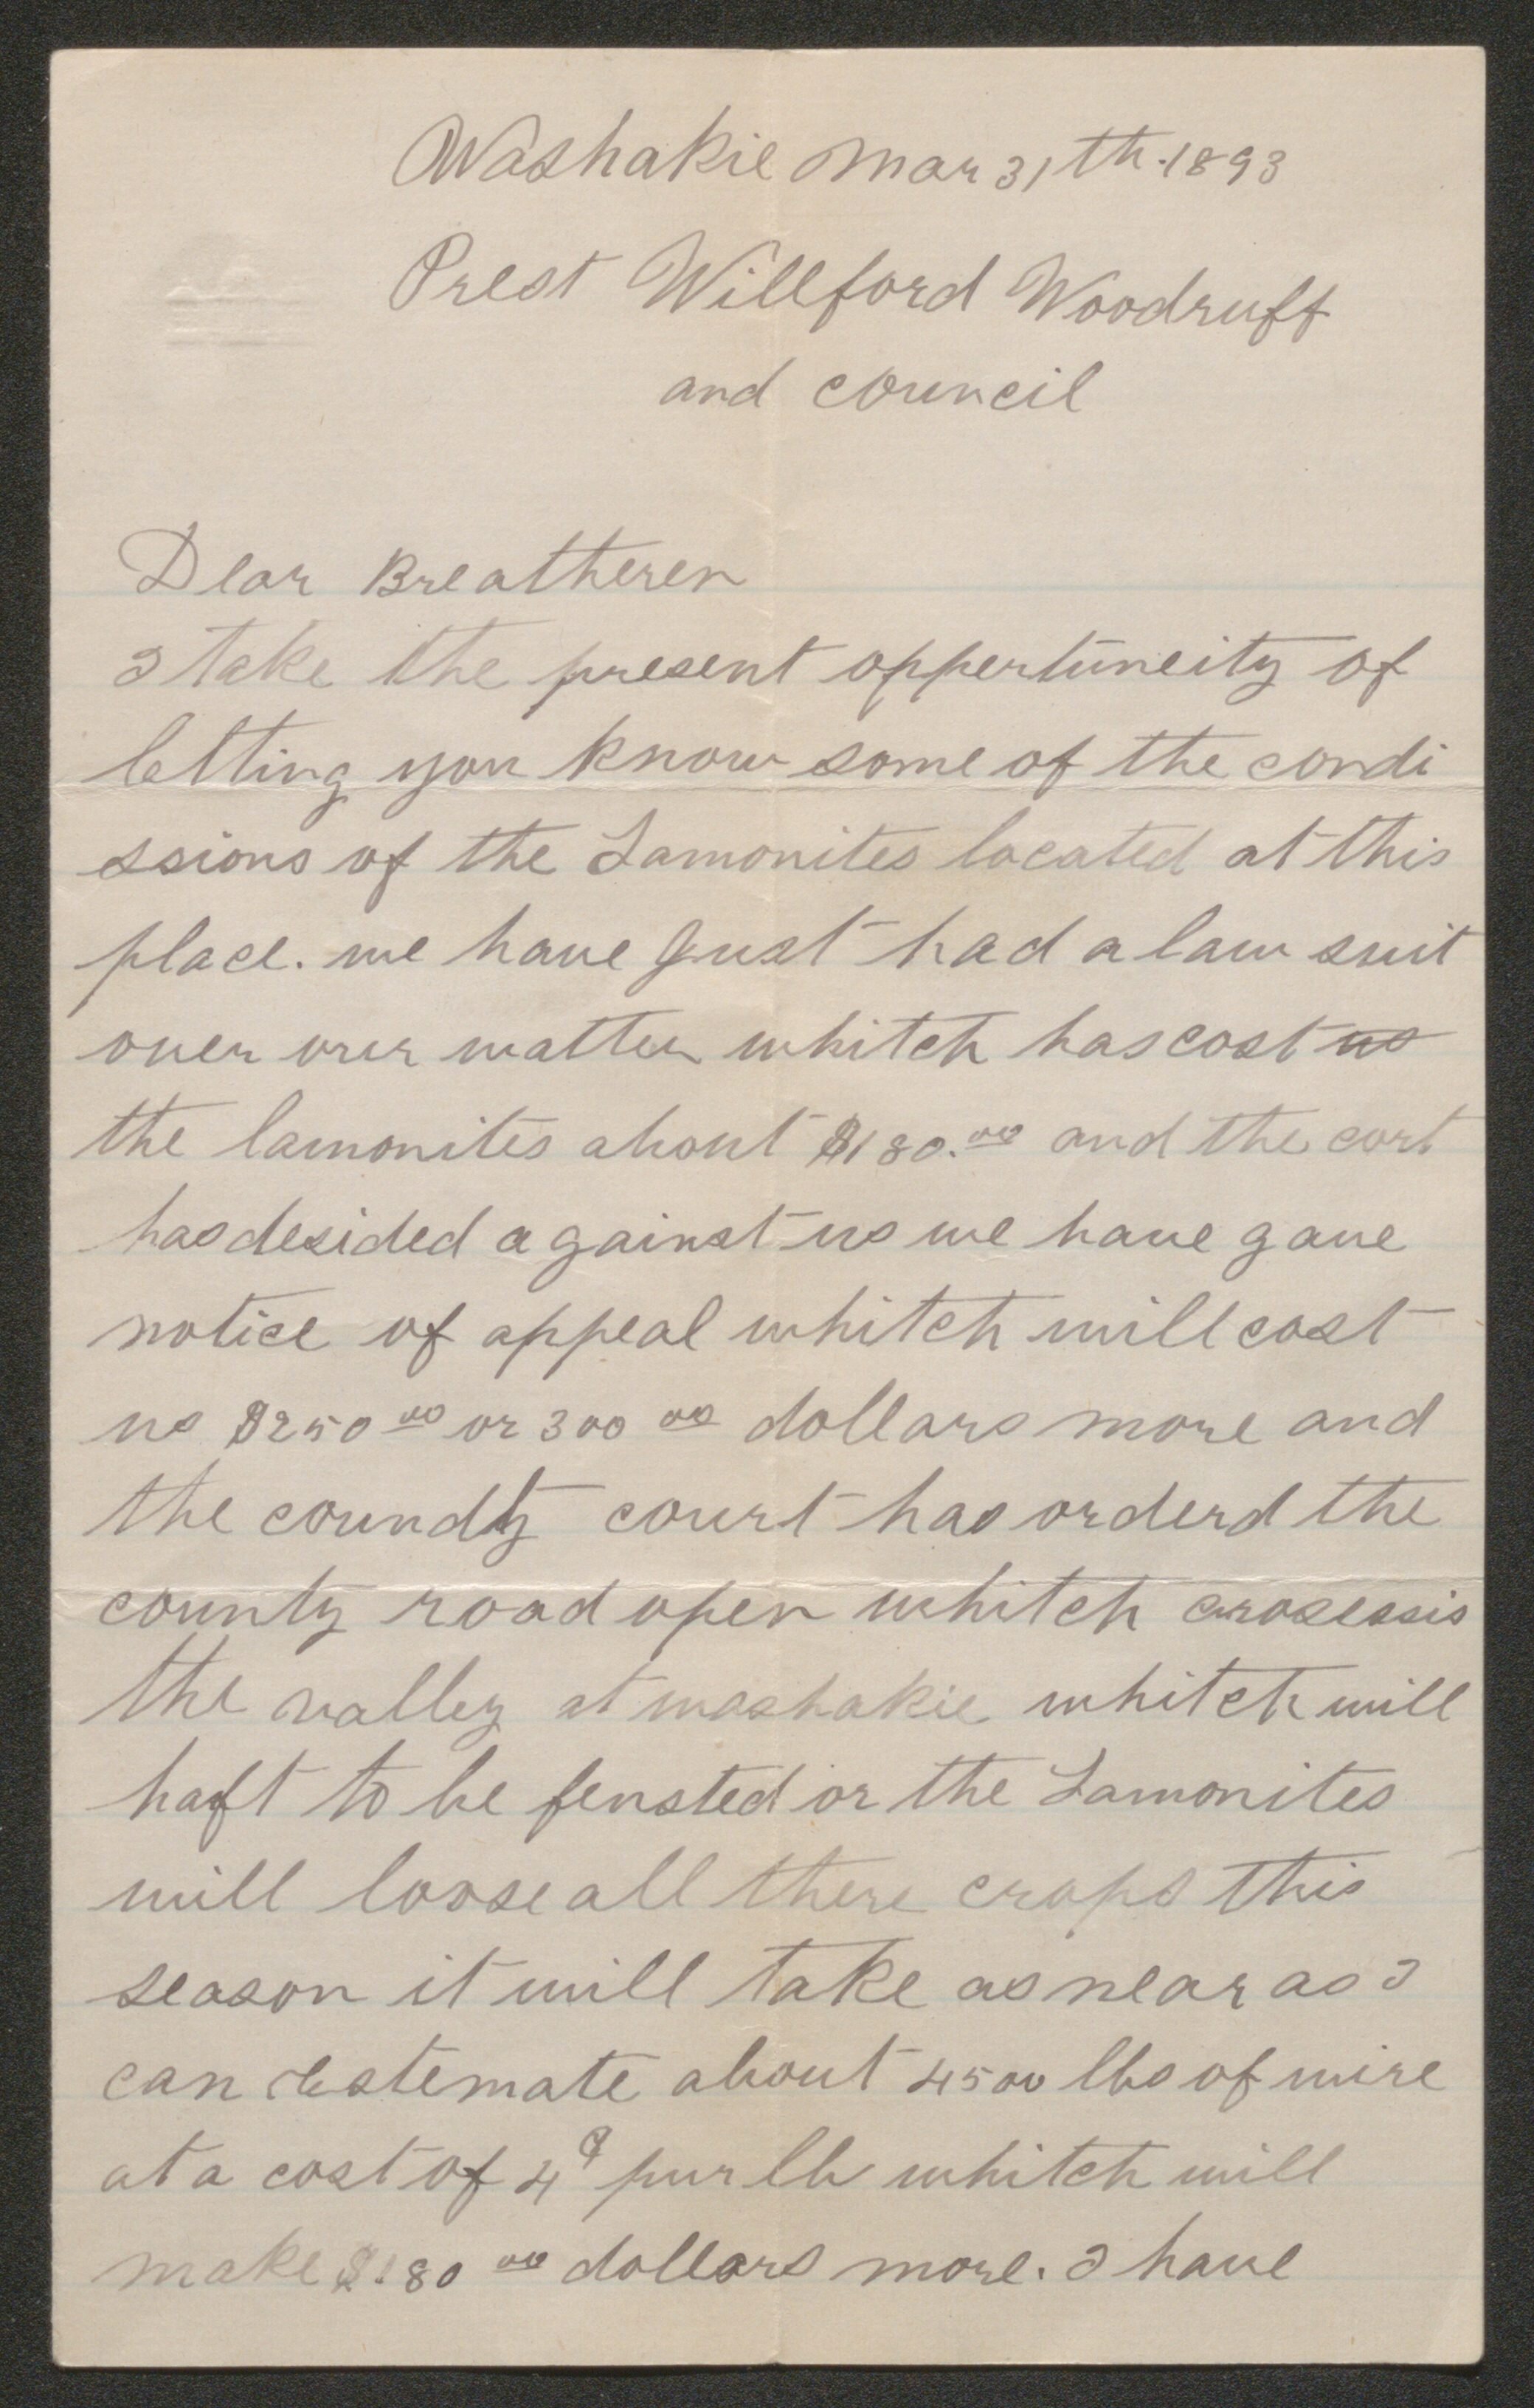 Washakie Mar 31th. 1893
Prest Willford Woodruff
and council
Dear Breatheren
I take the present oppertuneity of
letting you know some of the condi
ssions of the Lamonites located at this
place. we have Just had a law suit
over our watter whitch has cost us
the lamonites about $180.00 and the cort
has desided against us we have gave
notice of appeal whitch will cost
us $250 00 or 300 00 dollars more and
the coundty court has orderd the
county road open whitch crosessis
the valley at washakie whitch will
haft to be fensted or the Lamonites
will loose all there crops this
season it will take as near as I
can estemate about 4500 lbs of wire
at a cost of 4¢ pur lb whitch will
make $180 00 dollars more. I have